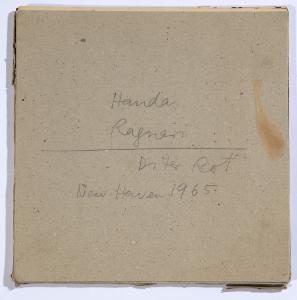 Handa
Ragnari
Diter Rot
New Haven 1965